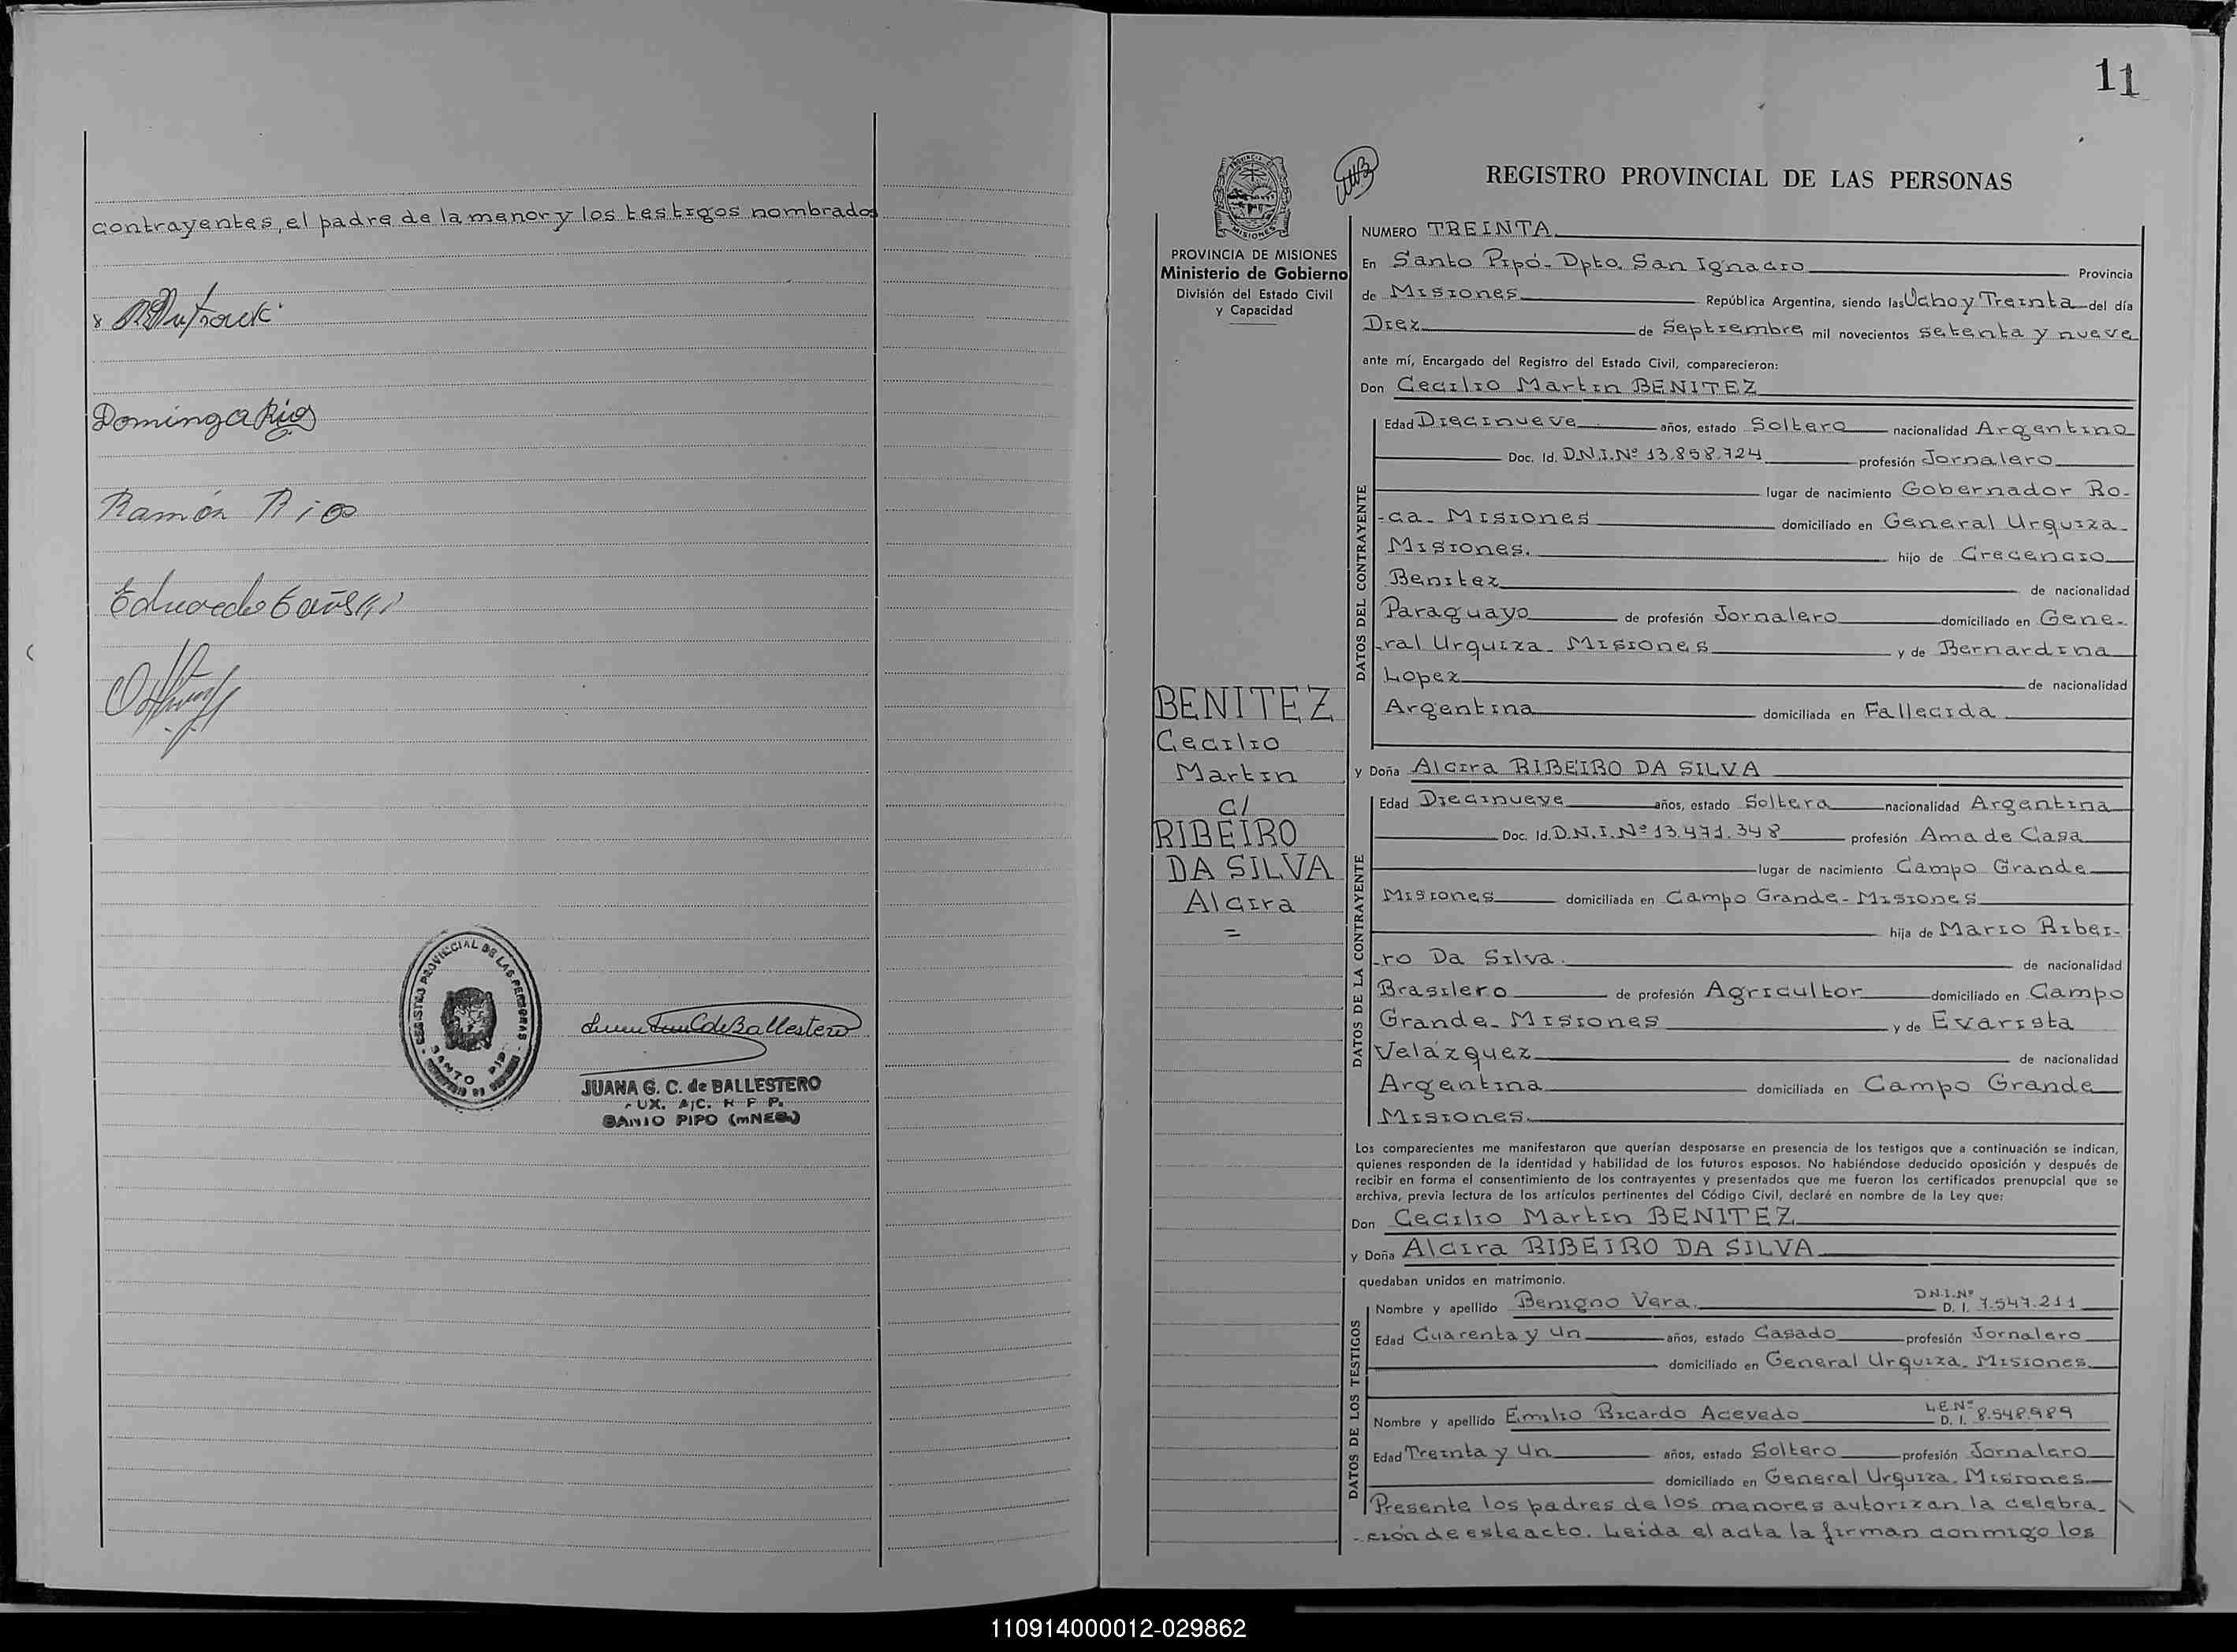 contrayentes, el padre de la menor y los testigos nombrados
Dominga Rios
Ramón Rios
Eduardo
REGISTRO PROVINCIAL DE LAS PERSONAS
SANTO PIPO
de Ballestero
JUANA G. C. de BALLESTERO
AUX. A/C. R P P.
SANTO PIPO (mNES.)
11
PROVINCIA DE MISIONES
Ministerio de Gobierno
División del Estado Civil
y Capacidad
BENITEZ
Cecilio
Martin
c/
RIBEIRO
DA SILVA
Alcira
=
REGISTRO PROVINCIAL DE LAS PERSONAS
NUMERO TREINTA
En Santo Pipó - Dpto. San Ignacio Provincia
de Misiones República Argentina, siendo las Ocho y Treinta del día
Diez de Septiembre mil novecientos setenta y nueve
ante mí, Encargado del Registro del Estado Civil, comparecieron:
Don Cecilio Martin BENITEZ
DATOS DEL CONTRAYENTE
Edad Diecinueve años, estado Soltero nacionalidad Argentino
Doc. Id. D.N.I. Nº 13.858.724 profesión Jornalero
lugar de nacimiento Gobernador Ro-
-ca - Misiones domiciliado en General Urquiza -
Misiones. hijo de Crecencio
Benitez de nacionalidad
Paraguayo de profesión Jornalero domiciliado en Gene-
-ral Urquiza - Misiones y de Bernardina
Lopez de nacionalidad
Argentina domiciliada en Fallecida
y Doña Alcira RIBEIRO DA SILVA
DATOS DE LA CONTRAYENTE
Edad Diecinueve años, estado Soltera nacionalidad Argentina
Doc. Id. D.N.I. Nº 13.471.348 profesión Ama de Casa
lugar de nacimiento Campo Grande
Misiones domiciliada en Campo Grande - Misiones
hija de Mario Ribei-
-ro Da Silva de nacionalidad
Brasilero de profesión Agricultor domiciliado en Campo
Grande - Misiones y de Evarista
Velázquez de nacionalidad
Argentina domiciliada en Campo Grande
Misiones.
Los comparecientes me manifestaron que querían desposarse en presencia de los testigos que a continuación se indican,
quienes responden de la identidad y habilidad de los futuros esposos. No habiéndose deducido oposición y después de
recibir en forma el consentimiento de los contrayentes y presentados que me fueron los certificados prenupcial que se
archiva, previa lectura de los artículos pertinentes del Código Civil, declaré en nombre de la Ley que:
Don Cecilio Martin BENITEZ
y Doña Alcira RIBEIRO DA SILVA
quedaban unidos en matrimonio.
DATOS DE LOS TESTIGOS
Nombre y apellido Benigno Vera D.N.I. Nº D. I. 7.547.211
Edad Cuarenta y un años, estado Casado profesión Jornalero
domiciliado en General Urquiza - Misiones
Nombre y apellido Emilio Ricardo Acevedo L.E. Nº D. I. 8.548.989
Edad Treinta y un años, estado Soltero profesión Jornalero
domiciliado en General Urquiza - Misiones
Presente los padres de los menores autorizan la celebra-
-ción de este acto. Leida el acta la firman conmigo los
110914000012-029862